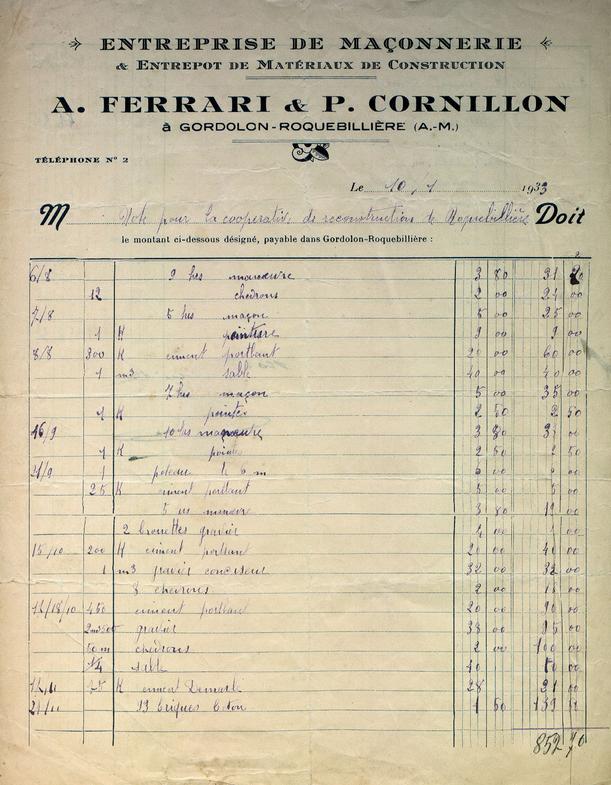 ENTREPRISE DE MAÇONNERIE
& ENTREPOT DE MATÉRIAUX DE CONSTRUCTION
A. FERRARI & P. CORNILLON
à GORDOLON-ROQUEBILLIÈRE (A.-M.)
TÉLÉPHONE N° 2
Le 10/1 1933
M Note pour la cooperative de reconstruction de Roquebillière Doit
le montant ci-dessous désigné, payable dans Gordolon-Roquebillière :
6/8 9 hes 3 80 31
12 chevrons 2 00 24 00
7/8 5 hes maçon 5 00 25 00
1 K peinture 9 00 9 00
8/8 300 K ciment portlant 20 00 60 00
1 m3 sable 40 00 40 00
7 hes maçon 5 00 35 00
1 K pointe 2 50 2 50
16/9 10 hes 3 80 00
1 K pointes 2 50 2 50
21/9 1 poteau 6 m 00 00
25 K ciment portlant 5 00 5 00
5 3 80 00
2 brouettes gravier 00 00
15/10 200 K ciment portlant 20 00 40 00
1 m3 gravier 32 00 32 00
8 chevrons 2 00 00
450 ciment portlant 20 00 90 00
gravier 38 00 95 00
50 m chevrons 2 00 100 00
sable 00
75 K ciment 28 21 00
21/11 briques 1 50
852